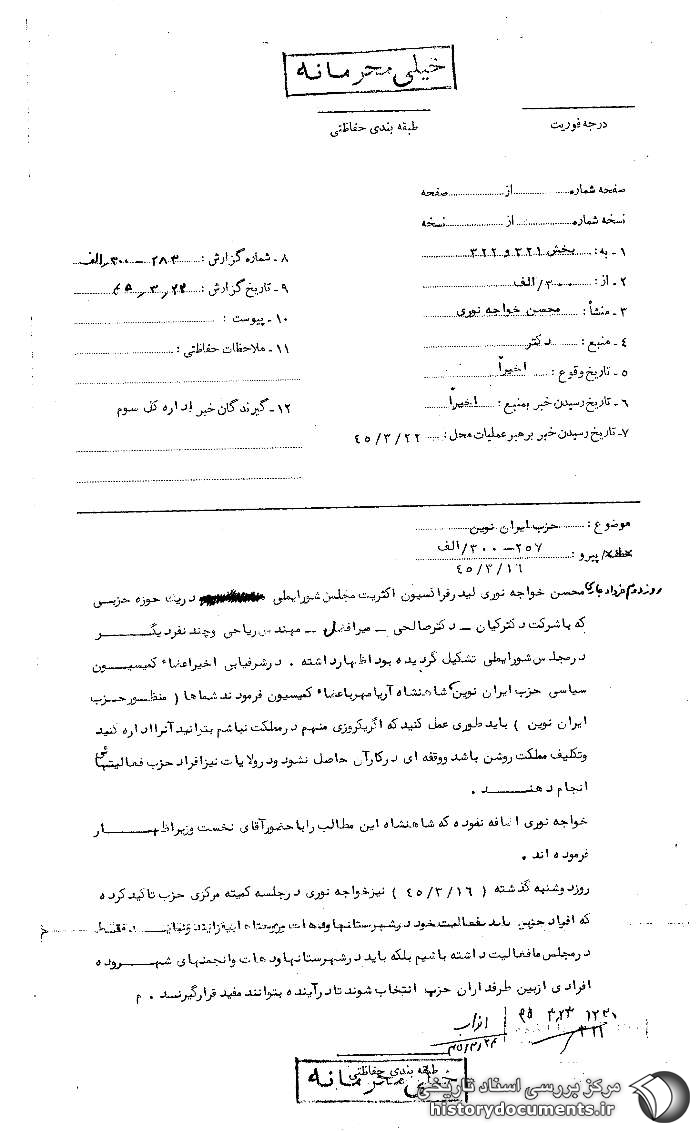 خیلی محرمانه
درجه فوریت
طبقه بندی حفاظتی
صفحه شماره از صفحه
نسخه شماره از نسخه
۱ - به : بخش ۳۲۱ و ۳۲۲
۲ - از : ۳۰۰/الف
۳ - منشأ : محسن خواجه نوری
۴ - منبع : دکتر
۵ - تاریخ وقوع : اخیراً
۶ - تاریخ رسیدن خبر بمنبع : اخیراً
۷- تاریخ رسیدن خبر برهبر عملیات محل : ۴۵/۳/۲۲
۸ - شماره گزارش : ۲۸۳ - ۳۰۰/الف
۹ - تاریخ گزارش : ۴۵/۳/۲۲
۱۰ - پیوست :
۱۱ - ملاحظات حفاظتی :
۱۲ - گیرندگان خبر اداره کل سوم
موضوع : حزب ایران نوین
پیرو : ۲۵۷ - ۳۰۰/الف
۴۵/۳/۱۶
محسن خواجه نوری لیدر فراکسیون اکثریت مجلس شورایملی در یک حوزه حزبی
که با شرکت دکتر کیان - دکتر صالحی - میرافضل - مهندس ریاحی و چند نفر دیگر
در مجلس شورایملی تشکیل گردیده بود اظهار داشته . در شرفیابی اخیر اعضاء کمیسیون
سیاسی حزب ایران نوین شاهنشاه آریامهر باعضاء کمیسیون فرمودند شماها ( منظور حزب
ایران نوین ) باید طوری عمل کنید که اگر یکروزی منهم در مملکت نباشم بتوانید آنرا اداره کنید
وتکلیف مملکت روشن باشد ووقفه ای در کار آن حاصل نشود ودر ولایات نیز افراد حزب فعالیتهائی
انجام دهند .
خواجه نوری اضافه نموده که شاهنشاه این مطالب را با حضور آقای نخست وزیر اظهار
فرموده اند .
روز دوشنبه گذشته ( ۴۵/۳/۱۶ ) نیز خواجه نوری در جلسه کمیته مرکزی حزب تاکید کرده
که افراد حزبی باید بفعالیت خود در شهرستانها ودهات بیفزایند فقط
در مجلس ما فعالیت داشته باشیم بلکه باید در شهرستانها ودهات وانجمنهای شهر و ده
افرادی از بین طرفداران حزب انتخاب شوند تا در آینده بتوانند مفید قرار گیرند . م
احزاب
۴۵/۳/۲۴
۳۲۲
طبقه بندی حفاظتی
خیلی محرمانه
مرکز بررسی اسناد تاریخی
historydocuments.ir